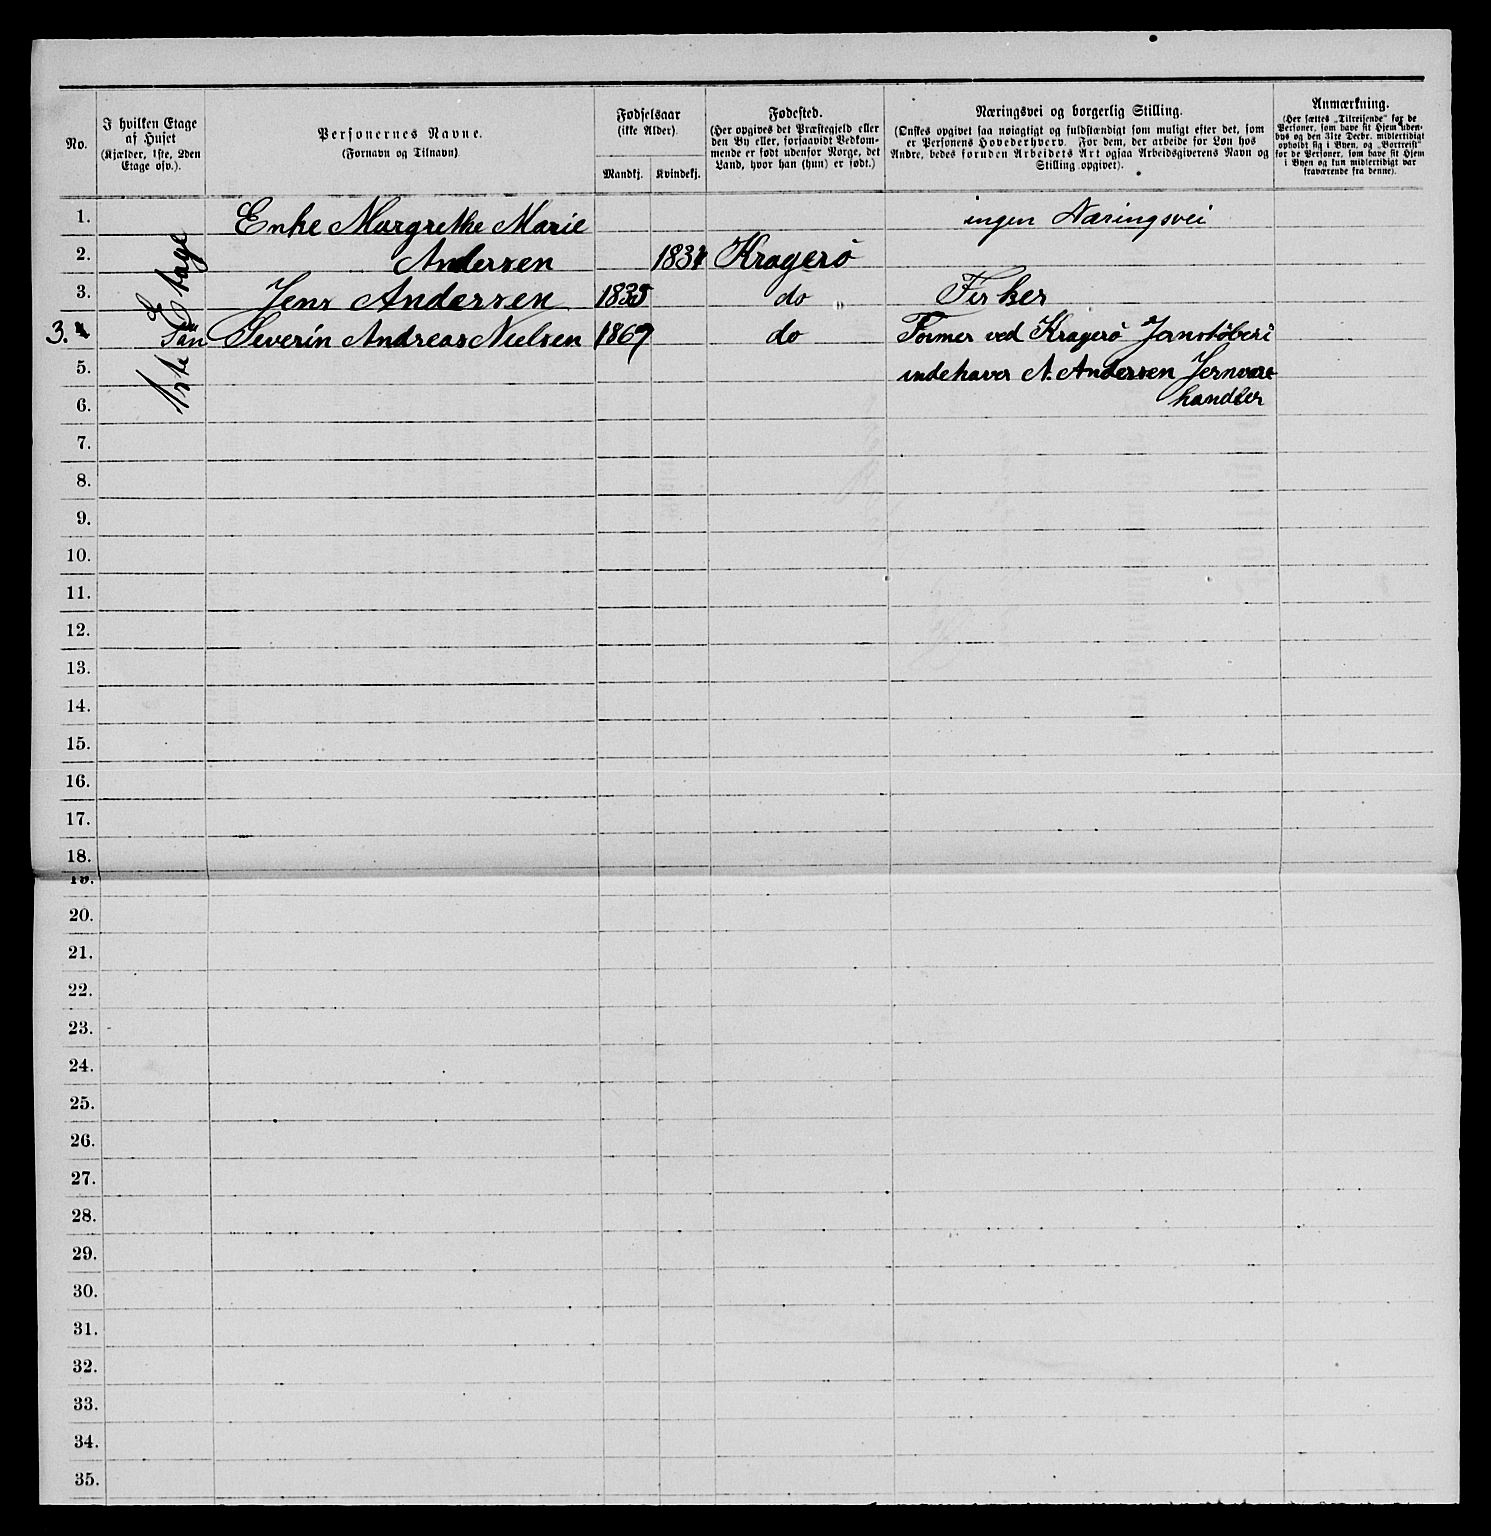 No.
I hvilken Etage
af Huset
(Kjælder, 1ste, 2den
Etage osv.).
Personernes Navne.
(Fornavn og Tilnavn)
Fødselsaar
(ikke Alder)
Mandkj.
Kvindekj.
Fødested.
(Her opgives det Præstegjeld eller
den By eller, forsaavidt Vedkom-
mende er født udenfor Norge, det
Land, hvor han (hun) er født.)
Næringsvei og borgerlig Stilling.
(Ønskes opgivet saa nøiagtigt og fuldstændigt som muligt efter det, som
er Personens Hovederhverv. For dem, der arbeide for Løn hos
Andre, bedes foruden Arbeidets Art ogsaa Arbeidsgiverens Navn og
Stilling opgivet).
Anmærkning.
(Her sættes „Tilreisende" for de
Personer, som have sit Hjem uden-
bys og den 31te Decbr. midlertidigt
opholdt sig i Byen, og „Bortreist"
for de Personer, som have sit Hjem
i Byen og kun midlertidigt var
fraværende fra denne).
1ste Etage
1. Enke Margrethe Marie ingen Næringsvei
2. Andersen Kragerö
3. Jens Andersen do „ Fisker
3. Severin Andreas Nielsen 1867 do Former ved Kragerö Jernstøberi
5. indehaver N. Andersen Jernvare
6. handler
7.
8.
9.
10.
11.
12.
13.
14.
15.
16.
17.
18.
19.
20.
21.
22.
23.
24.
25.
26.
27.
28.
29.
30.
31.
32.
33.
34.
35.